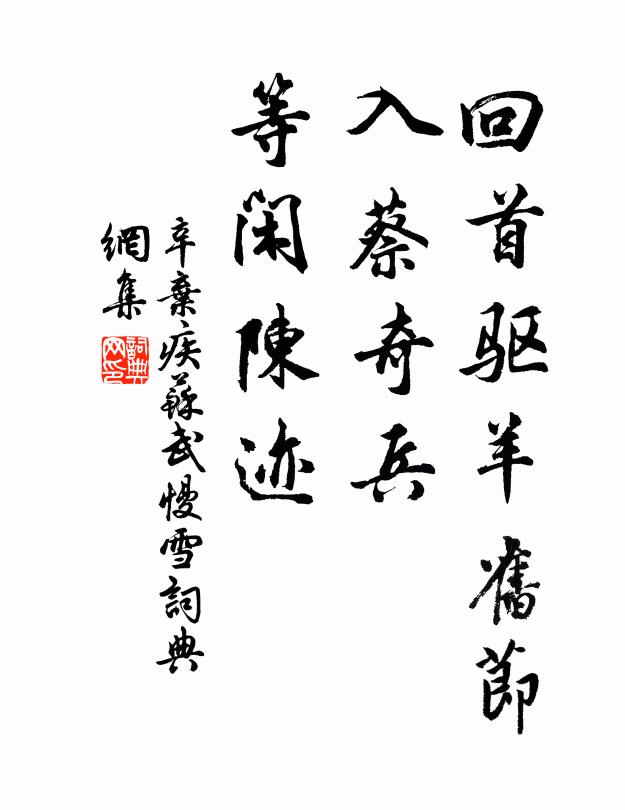 回首驱羊舊節
入蔡奇兵
等閑陳迹
辛棄疾蘇武慢雪詞典
網集
詞典
网印